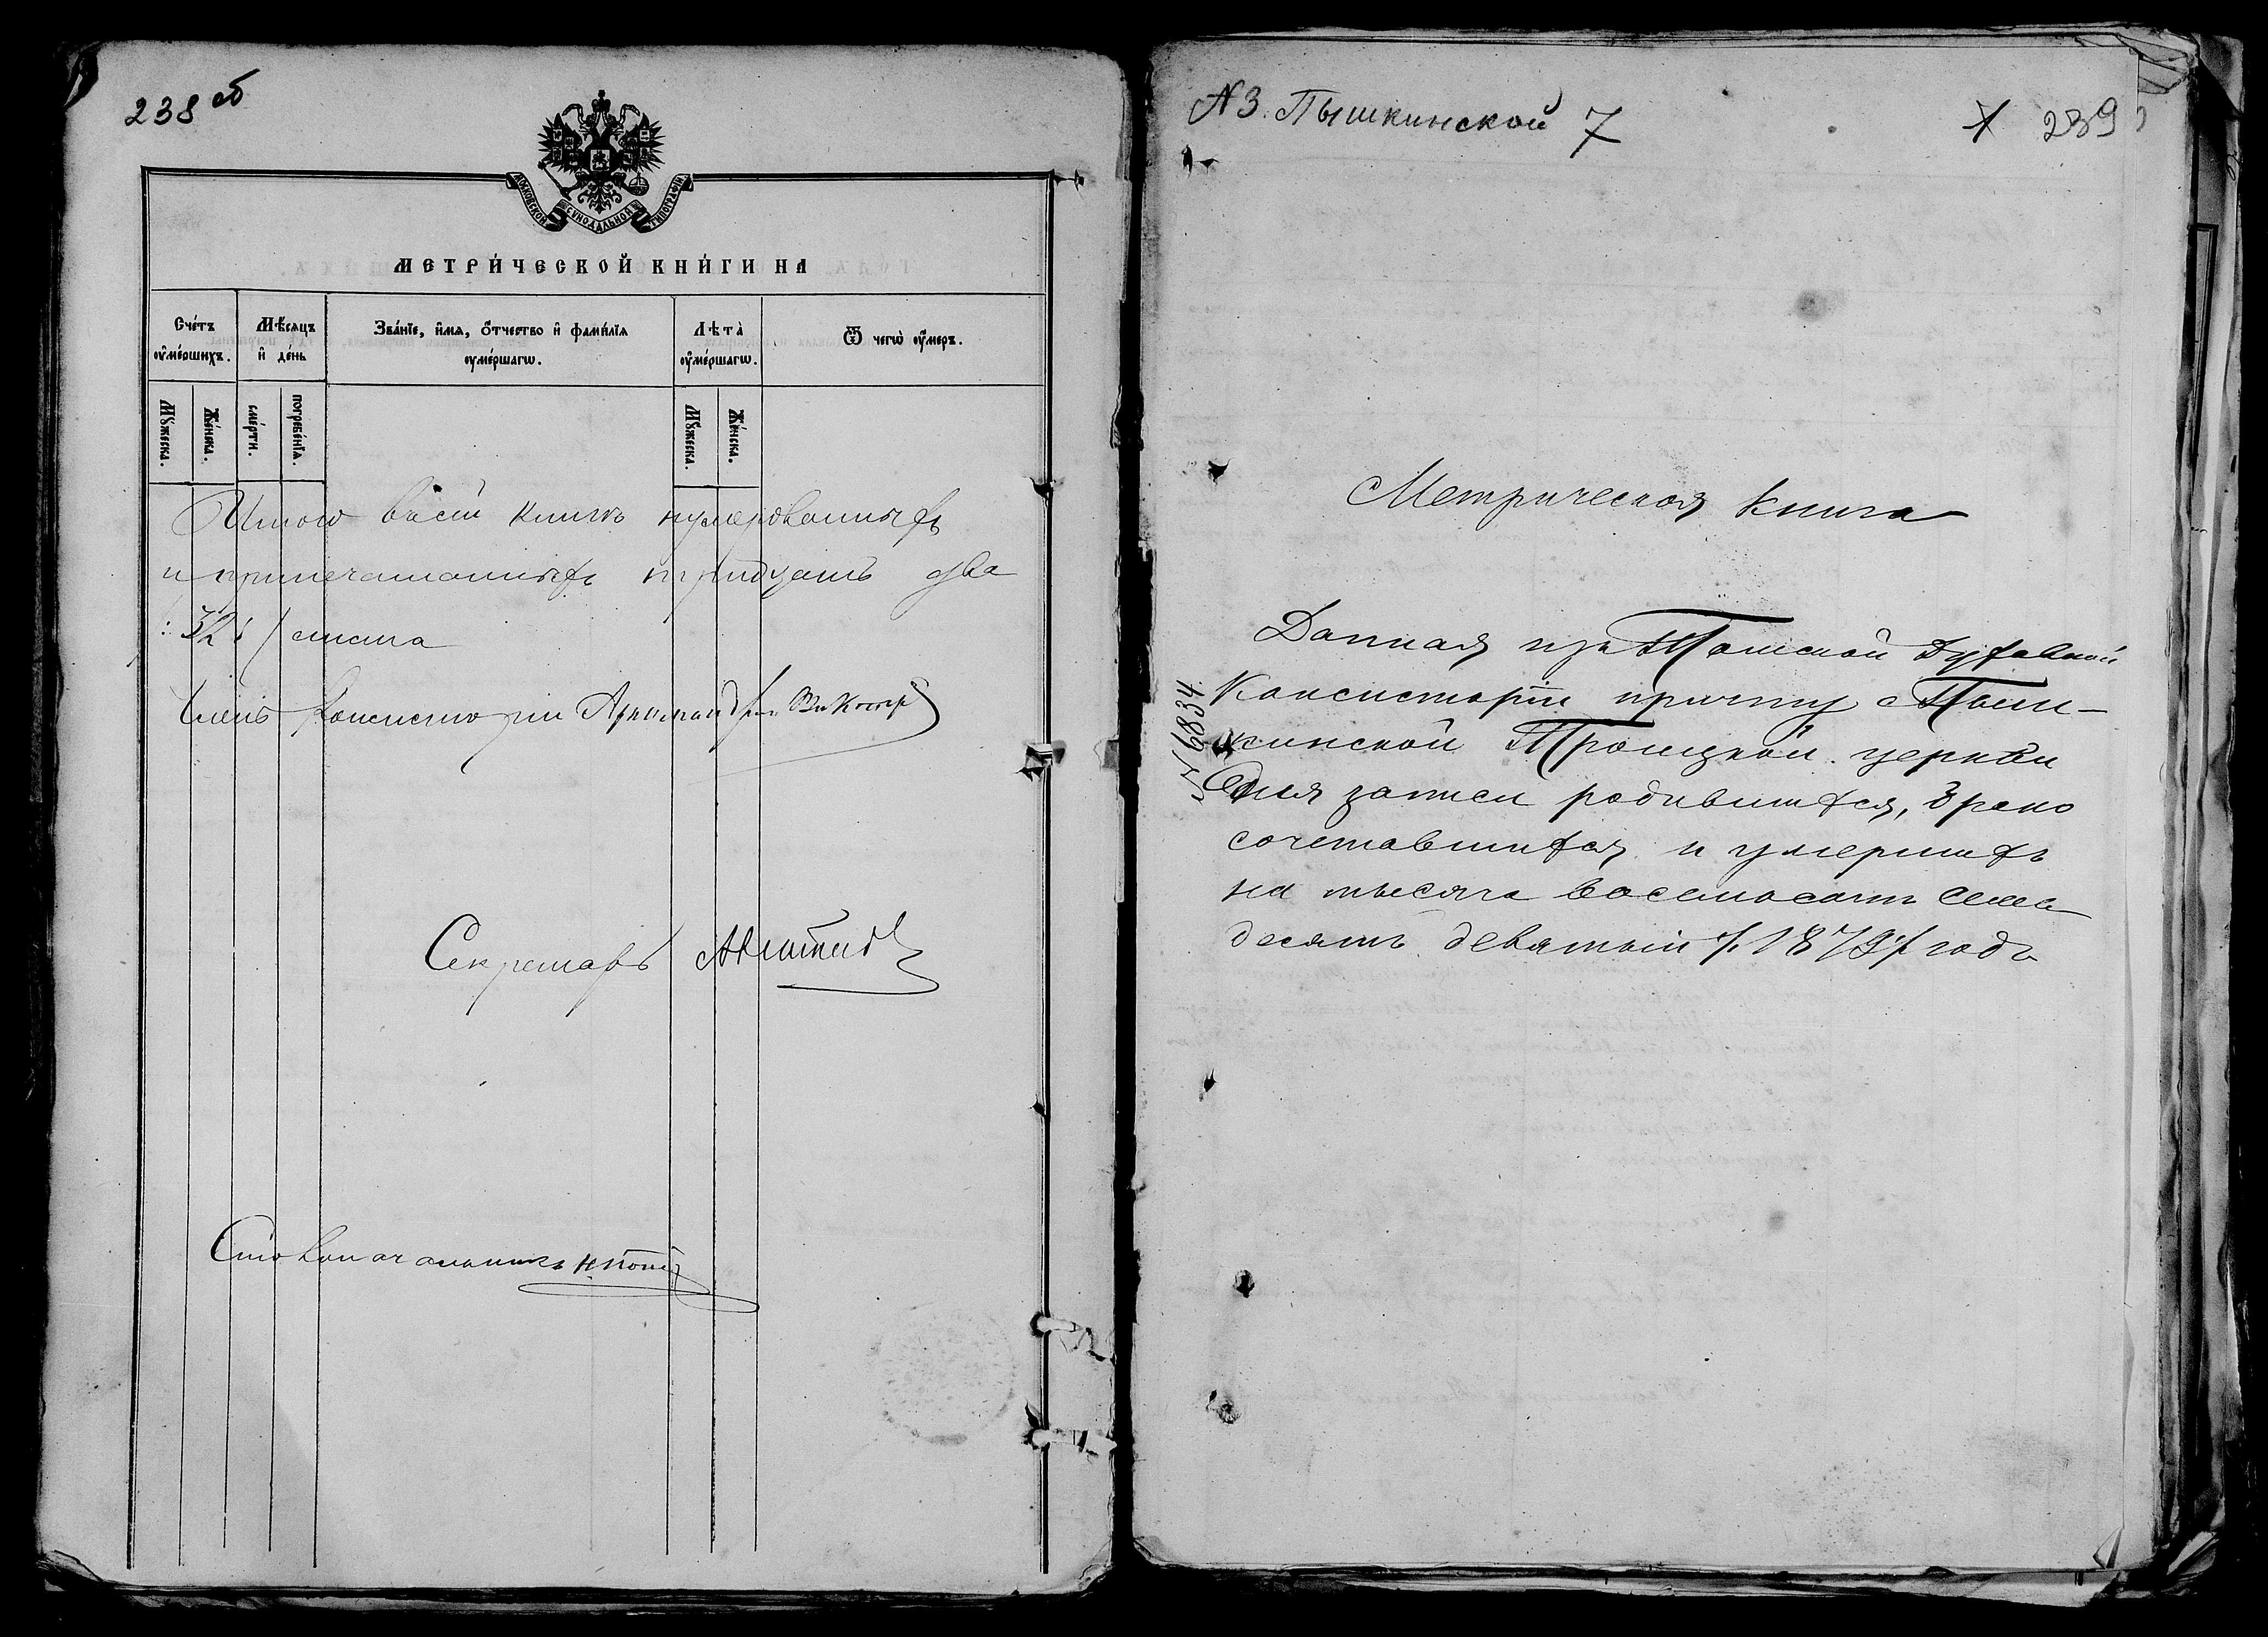 238 об
МОСКОВСКОЙ СѴНОДАЛЬНОЙ ТИПОГРАФІИ
МЕТРИ́ЧЕСКОЙ КНИ́ГИ НА
Сче́тъ оу҆ме́ршихъ.
Мѣ́сяцъ и҆ де́нь
Зва́нїе, и҆́мя, ѻ҆́тчество и҆ фами́лїя оу҆ме́ршагѡ.
Лѣта̀ оу҆ме́ршагѡ.
Ѿ чегѡ̀ оу҆́меръ.
Мꙋ́жеска.
Же́нска.
сме́рти.
погребе́нїѧ.
Мꙋ́жеска.
Же́нска.
Итого въ сей книгѣ нумерованныхъ
и припечатанныхъ тридцать два
:32: / листа
Членъ Консисторіи Архимандритъ Викторъ
Секретарь
Столоначальникъ
№3. Пышкинской 7
239
Метрическая книга
№ 6834.
Данная изъ Томской Духовной
Консисторіи причту с Пыш-
кинской Троицкой церкви
для записи родившихся, брако
сочетавшихся и умершихъ
на тысяча восемьсотъ семь
десятъ девятый /:1879:/ годъ